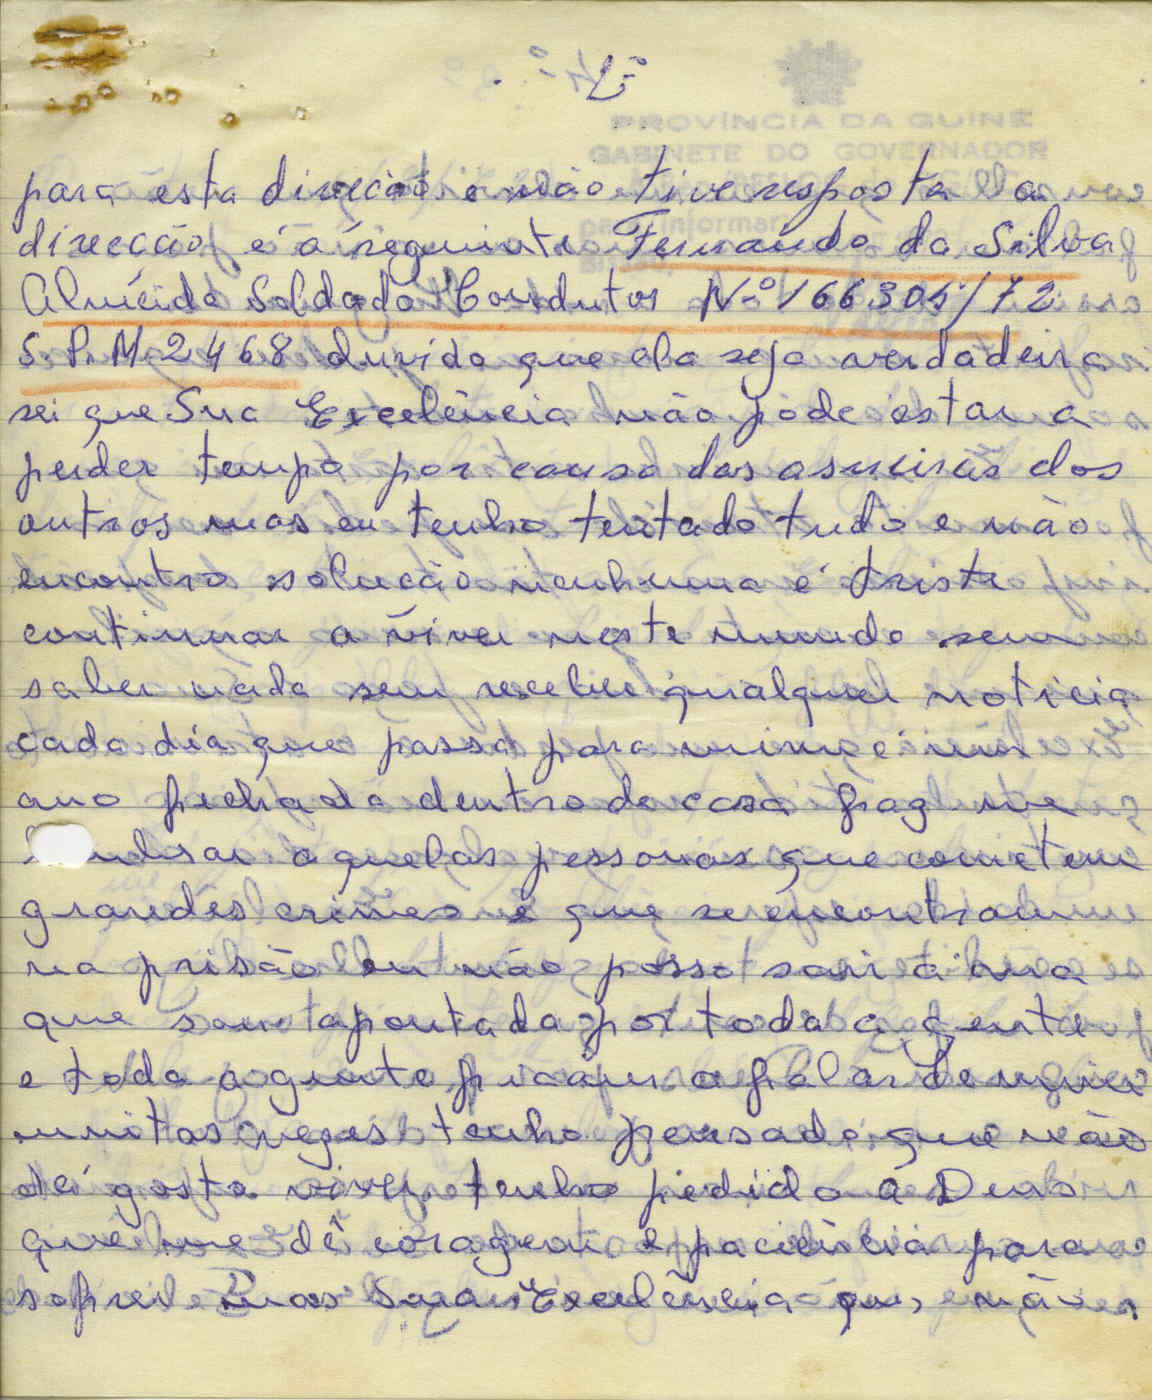 2º
PROVÍNCIA DA GUINÉ
GABINETE DO GOVERNADOR
para esta direcção e não tive resposta a
direcção é a seguinte Fernando da Silva
Almeida Soldado Condutor Nº 166305/72
S.P.M. 2468 duvido que ela seja verdadeira
sei que Sua Excelência não pode estar a
perder tempo por causa das asneiras dos
outros mas eu tenho tentado tudo e não
encontro solucão nenhuma é triste
continuar a viver neste mundo sem
saber nada sem receber qualquer noticia
cada dia que passa para mim é um
ano fechada dentro de casa faz me
aquelas pessoas que cometem
grandes crimes e que se encontram
na prisão eu não posso sair á rua
que sou apontada por toda a gente
e toda a gente fica a falar de mim
muitas vezes tenho pensado que não
dá gosto viver tenho pedido a Deus
que me dê coragem e paciência para
sofrer mas Excelência eu não